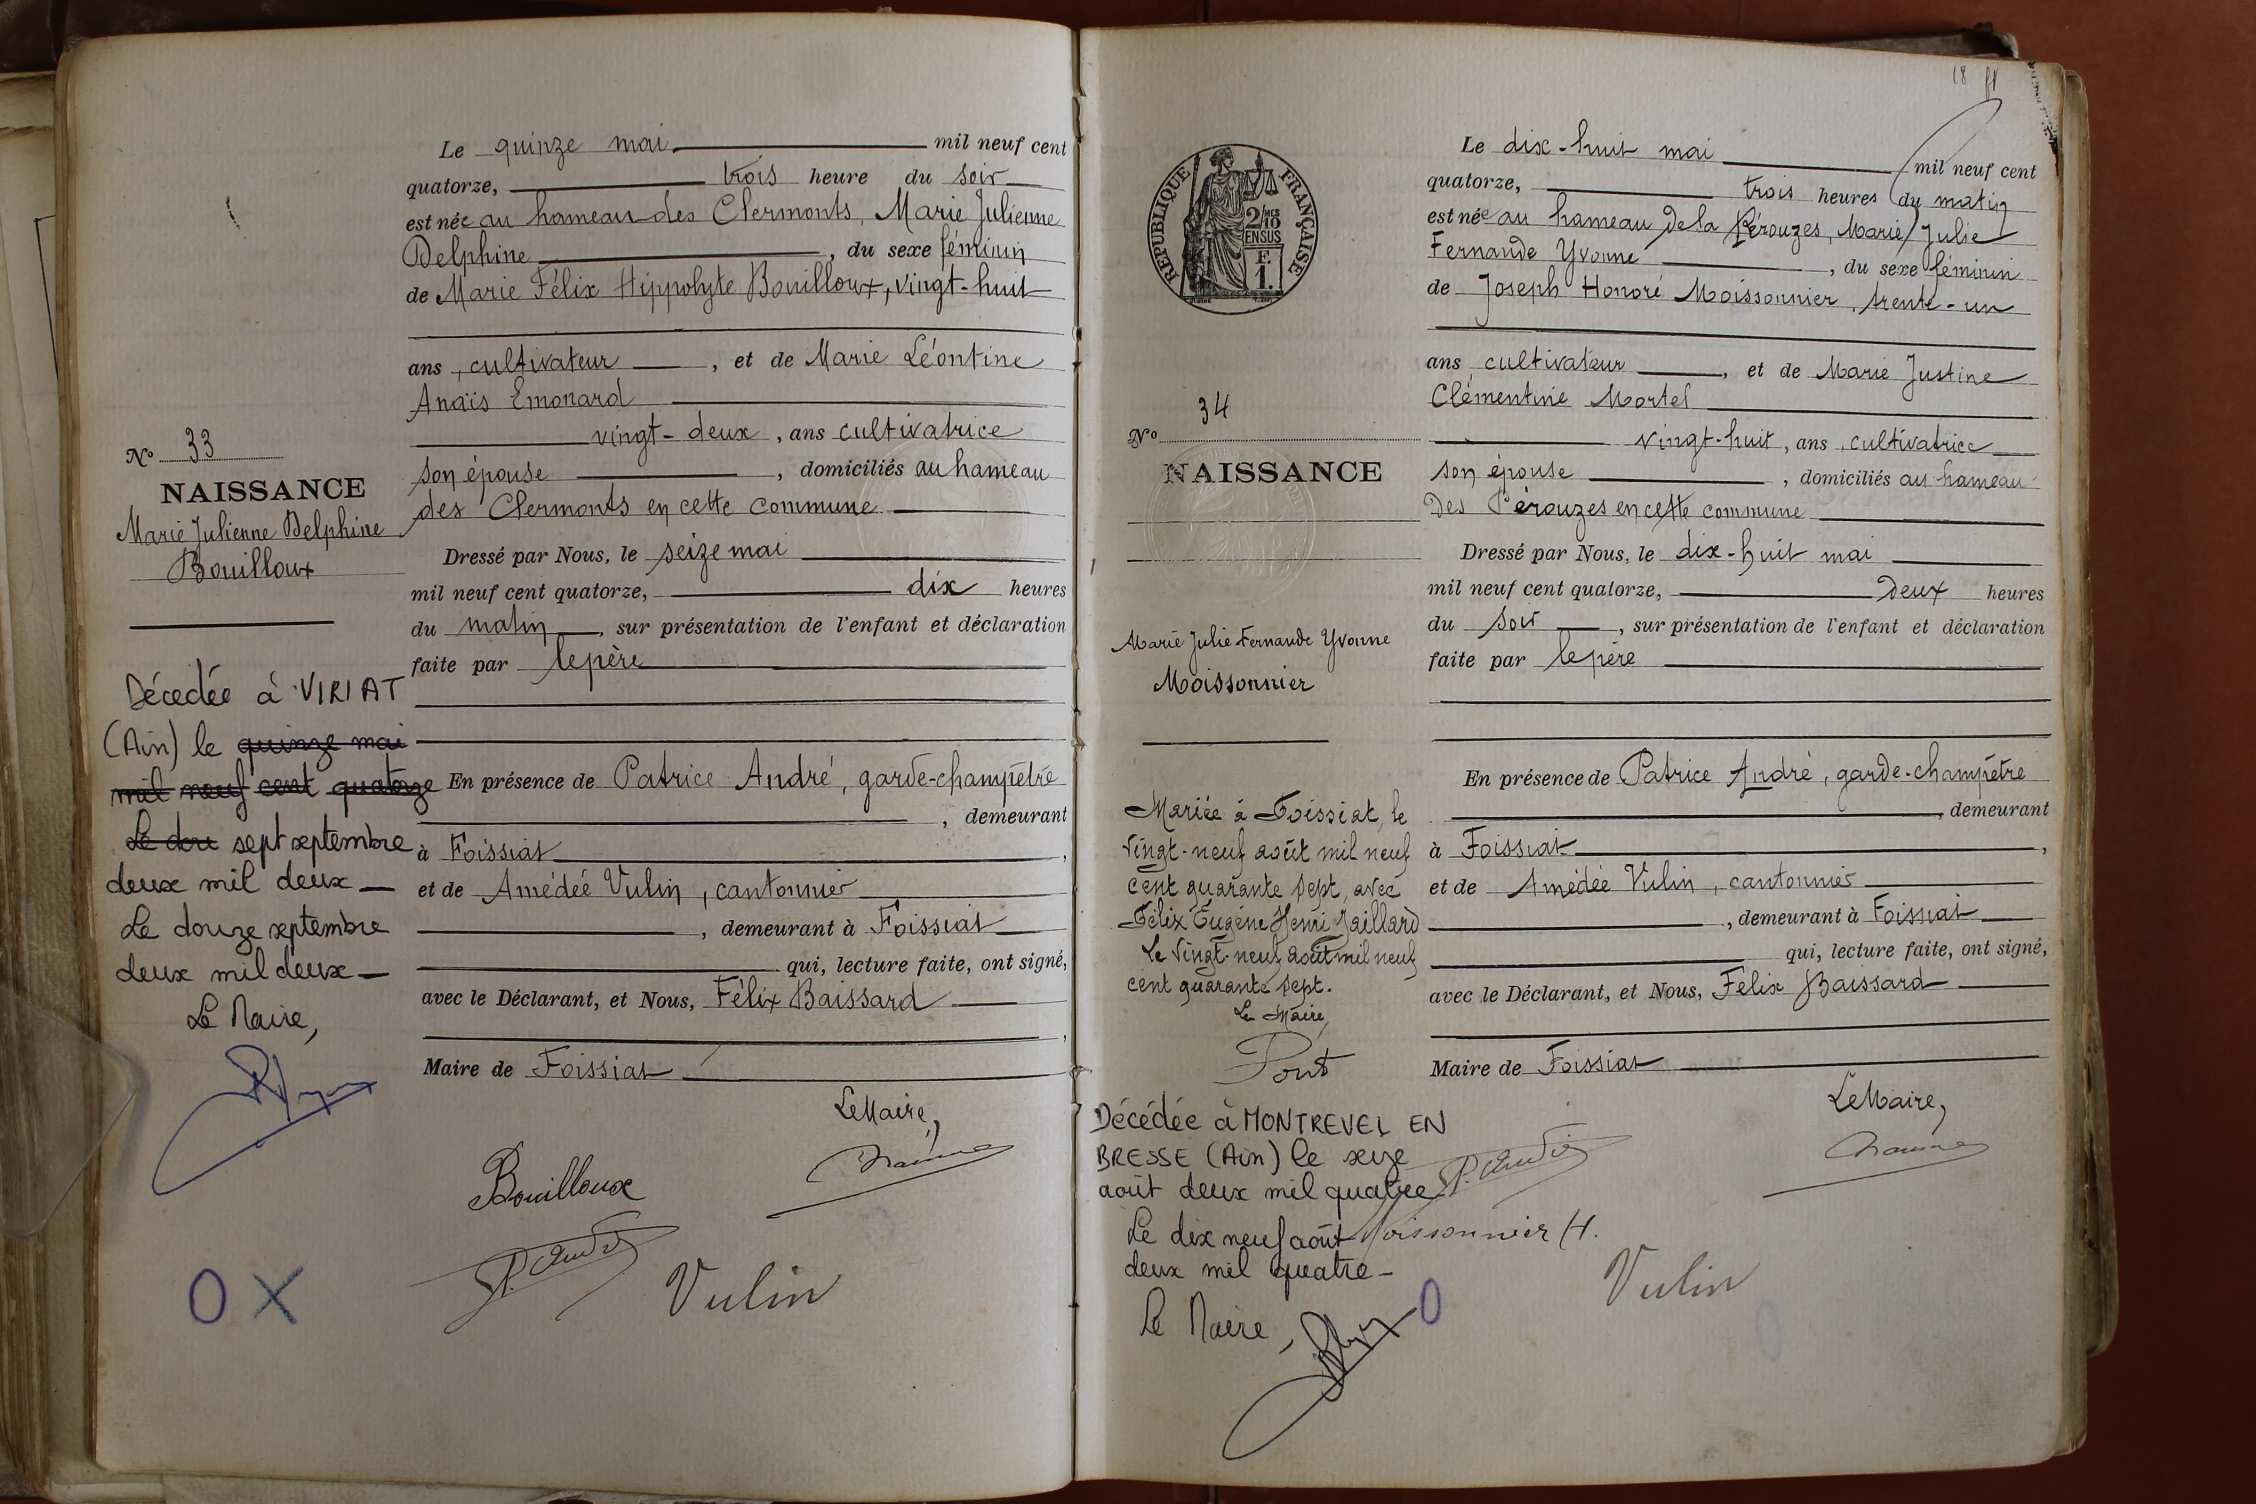 Le quinze mai mil neuf cent
quatorze, trois heure du soir
est née au hameau des Clermonts, Marie Julienne
Delphine, du sexe féminin
de Marie Félix Hippolyte Bouilloux, vingt-huit
ans, cultivateur, et de Marie Léontine
Anaïs Emonard
vingt-deux, ans cultivatrice
son épouse, domiciliés au hameau
des Clermonts en cette commune
Dressé par Nous, le seize mai
mil neuf cent quatorze, dix heures
du matin, sur présentation de l'enfant et déclaration
faite par le père
En présence de Patrice André, garde-champêtre
, demeurant
à Foissiat,
et de Amédée Vulin, cantonnier
, demeurant à Foissiat
qui, lecture faite, ont signé,
avec le Déclarant, et Nous, Félix Baissard
,
Maire de Foissiat
Le Maire,
Bouilloux
P. André
Vulin
No 33
NAISSANCE
Marie Julienne Delphine
Bouilloux
Décédée à VIRIAT
(Ain) le quinze mai
mil neuf cent quatorze
Le dou sept septembre
deux mil deux
Le douze septembre
deux mil deux
Le Maire,
O X
18
RÉPUBLIQUE FRANÇAISE
2/10 MES
EN SUS
F.
1.
Le dix-huit mai mil neuf cent
quatorze, trois heures du matin
est née au hameau de la Pérouzes, Marie Julie
Fernande Yvonne, du sexe féminin
de Joseph Honoré Moissonnier, trente-un
ans cultivateur, et de Marie Justine
Clémentine Mortel
vingt-huit, ans, cultivatrice
son épouse, domiciliés au hameau
des Pérouzes en cette commune
Dressé par Nous, le dix-huit mai
mil neuf cent quatorze, deux heures
du soir, sur présentation de l'enfant et déclaration
faite par le père
En présence de Patrice André, garde-champêtre
, demeurant
à Foissiat,
et de Amédée Vulin, cantonnier
, demeurant à Foissiat
qui, lecture faite, ont signé,
avec le Déclarant, et Nous, Félix Baissard
Maire de Foissiat
Le Maire,
P. André
Moissonnier H.
Vulin
No 34
NAISSANCE
Marie Julie Fernande Yvonne
Moissonnier
Mariée à Foissiat, le
vingt-neuf août mil neuf
cent quarante sept, avec
Félix Eugène Henri Jaillard
Le vingt-neuf août mil neuf
cent quarante sept.
Le Maire,
Pont
Décédée à MONTREVEL EN
BRESSE (Ain) le seize
août deux mil quatre
Le dix neuf août
deux mil quatre -
Le Maire,
O